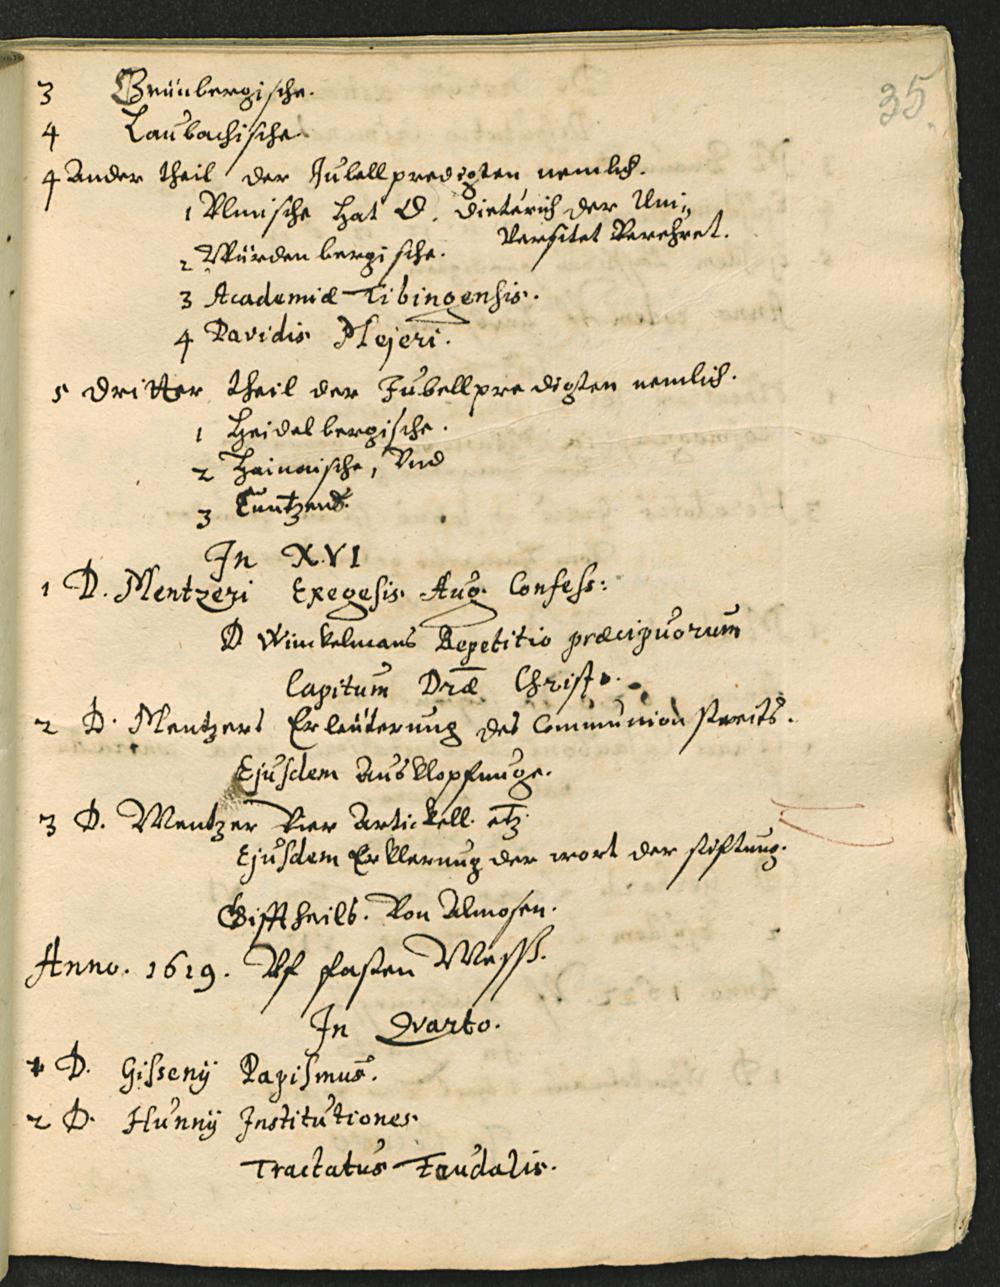 35.
3 Grünbergische.
4 Laubachische.
4 Ander theil der Jubellpredigten nemlich.
1 Vlmische hat D. Dieterich der Uni„
Versitet Verehret.
2 Würdenbergische.
3 Academiæ Tibingensis.
4 Davidis Mejeri.
5 Dritter theil der Jubellpredigten nemlich.
1 Heidelbergische.
2 Hainaische, Vnd
3 Cuntzens.
In XVI
1 D. Mentzeri Exegesis Aug. Confess:
D Winckelmans Repetitio præcipuorum
Capitum Dræ Christ.
2 D. Mentzers Erleüterung des Communion streits.
Ejusdem Ausklopfunge.
3 D. Mentzer Vier Artickell. etz.
Ejusdem Erklerung der wort der stifftung.
Gifftheils. Von Almosen.
Anno. 1619. Vf fasten Mess.
In Qvarto.
1 D. Gisseny Papismus.
2 D. Hunny Institutiones.
Tractatus Feudalis.